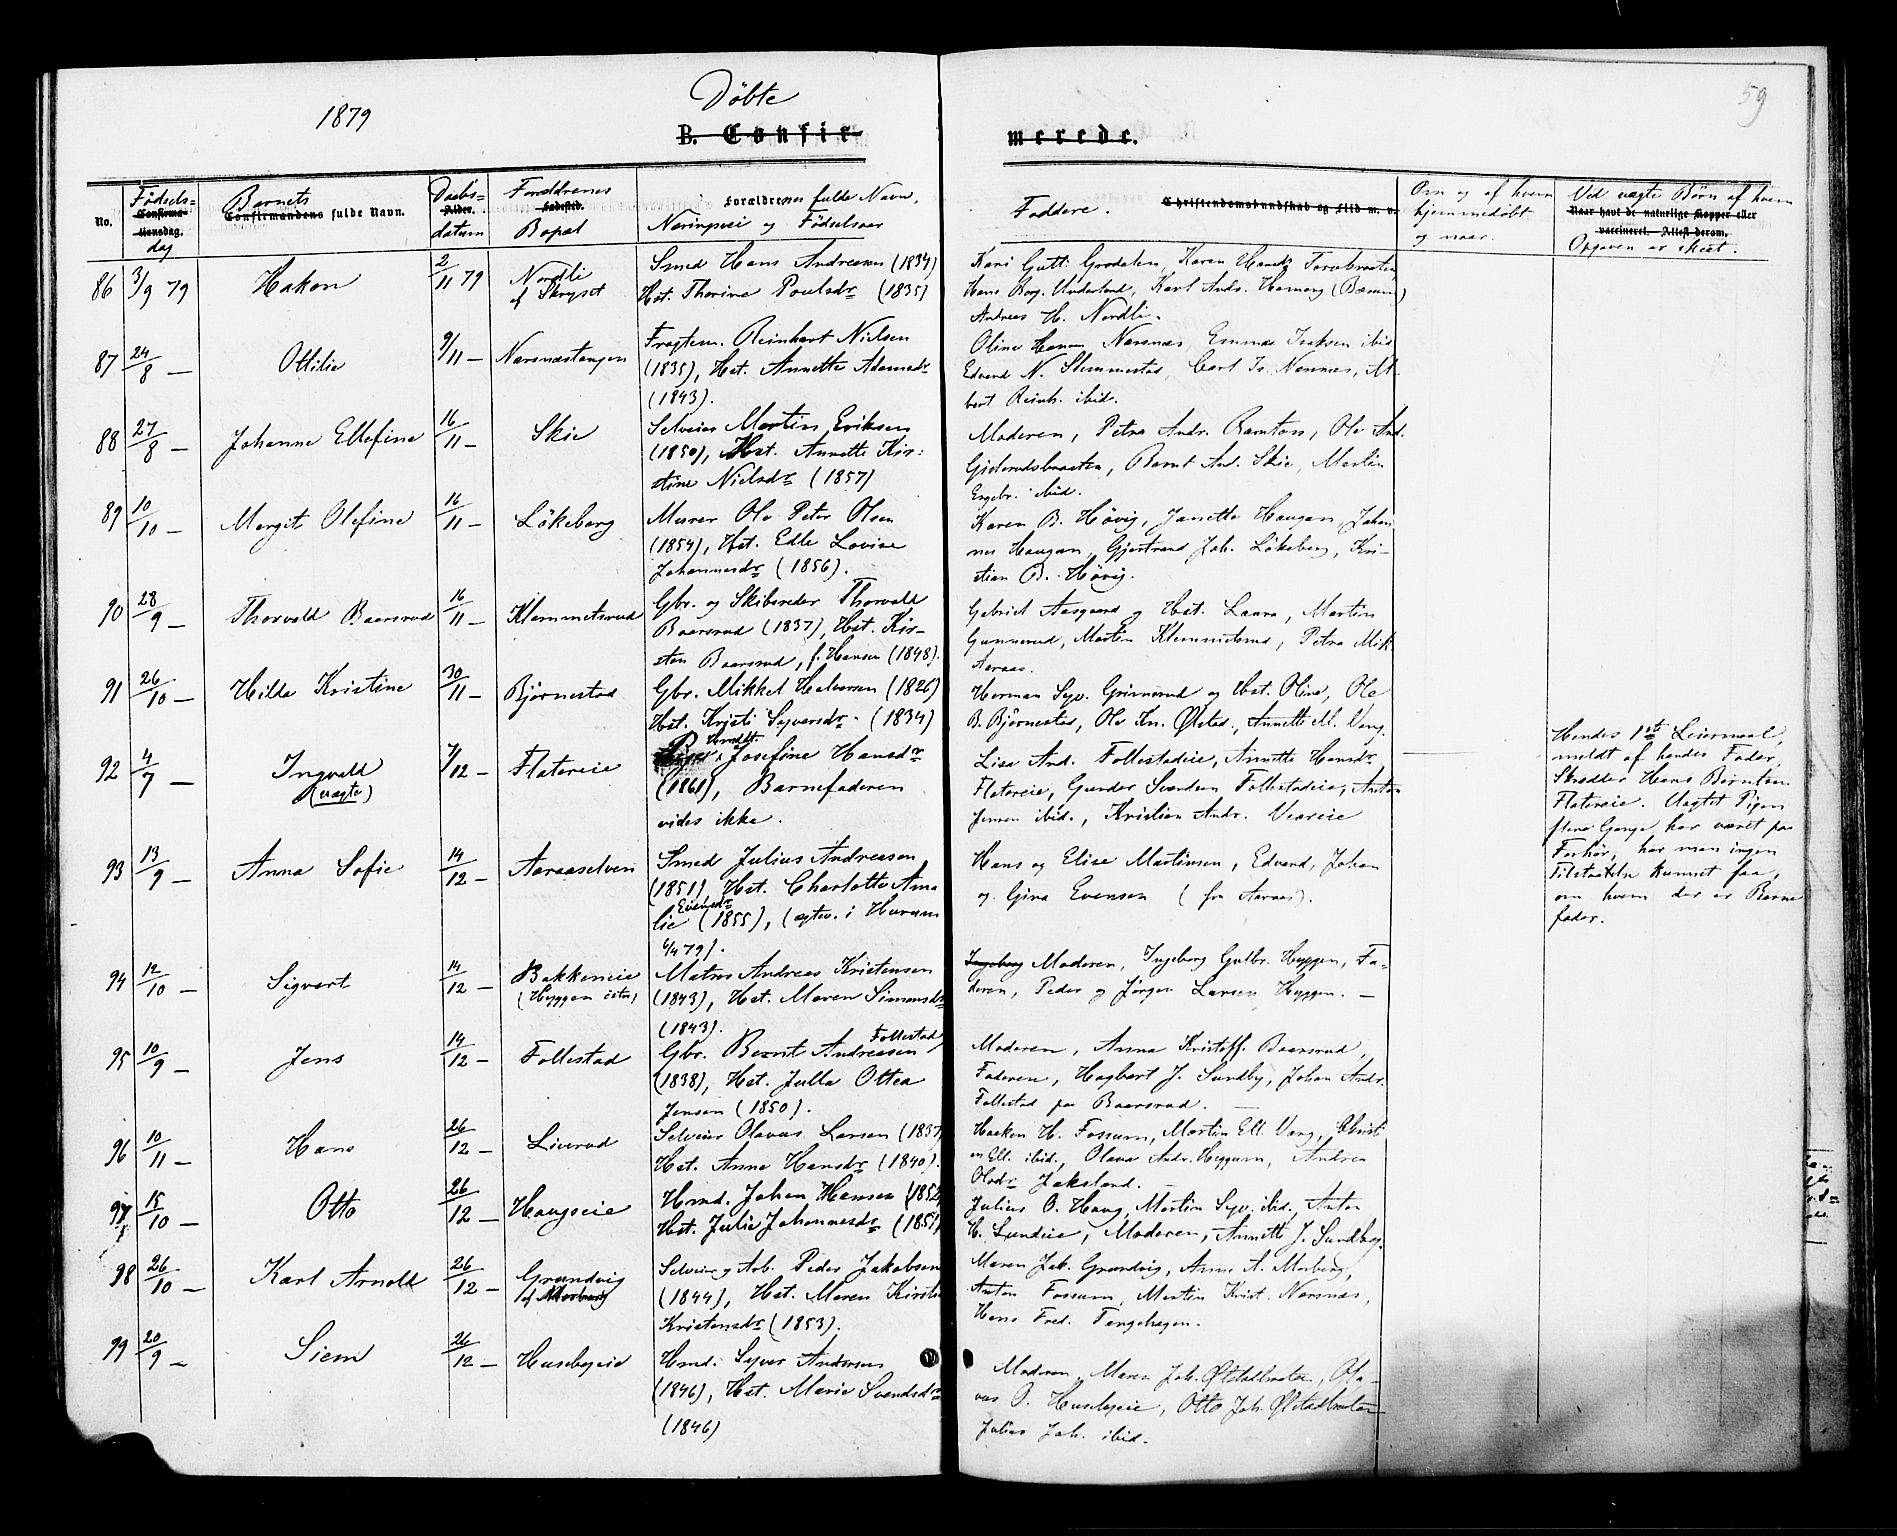 1879
Döbte
59
B. Confir-
merede.
No.
Födsels=
Confirma-
tionsdag.
dag
Barnets
Confirmandens fulde Navn.
Daabs-
Alder.
datum
Forældrenes
Fødested.
Bopæl
Forældrenes fulde Navn,
Næringsvei og Födselsaar
Faddere. Christendomskundskab og Flid m. v.
Om og af hvem
hjemmedøbt
og naar.
Ved uægte Børn af hvem
Naar havt de naturlige Kopper eller
vaccineret. Attest derom.
Opgaven er skeet.
86 3/9 79 Hakon 2/11 79 Nordli
af Skryset
Smed Hans Andreasen (1834)
Hst. Thorine Poulsdr (1835)
Kari Gutt. Grodalen, Karen
Hans Borg. Underland, Karl Andr. (Bærum)
Andreas H. Nordli.
87 24/8 — Ottilie 9/11 — Narsnæstangen
Fragtem. Reinhart Nielsen
(1835), Hst. Annette Adamsdr
(1843).
Oline Narsnæs, Emma Isaksen ibid
Edvard N. Slemmestad, Carl Is. Narsnæs, Al-
bert Reinh. ibid.
88 27/8 — Johanne Ellefine 16/11 — Skie
Selveier Martin Eriksen
(1850), Hst. Annette Kir=
stine Nielsdr (1857)
Moderen, Petra Andr. Ramton, Ole And.
Gjelerudsbraaten, Bernt And. Skie, Martin
Engebr. ibid.
89 10/10 — Margit Olefine 16/11 — Lökeberg
Murer Ole Peter Olsen
(1854), Hst. Edle Lovise
Johannesdr (1856).
Karen B. Hövig, Janette Haugan, Johan
nes Haugan, Gjertrand Joh. Lökeberg, Kri-
stian B. Hövig.
90 28/9 — Thorvald Baarsrud 16/11 — Klemmetsrud
Gbr. og Skibsreder Thorvald
Baarsrud (1837), Hst. Kir-
sten Baarsrud, f. Hansen (1848).
Gabriel Aasgaard og Hst. Laura, Martin
Gunnerud, Martin Klemmetsrud, Petra Mik.
Aaraas.
91 26/10 — Hilda Kristine 30/11 — Bjørnestad
Gbr. Mikkel Halvorsen (1826)
Hst. Kristi Syversdr. (1834)
Herman Syv. Grinnerud og Hst. Oline, Ole
B. Bjørnestad, Ole Kn. Ølstad, Annette M. Vang.
92 4/7 — Ingvald
(uægte)
7/12 — Flatereie
Josefine Hansdr
(1861), Barnefaderen
vides ikke.
Lisa And. Follestadeie, Annette Hansdr
Flatereie, Gunder Svendsen Follestadeie, Anton
Jensen ibid., Kristian Andr. Veareie
Hendes 1ste Leiermaal,
meldt af hendes Fader,
Skrædder Hans Berntsen
Flatereie. Uagtet Pigen
flere Gange har været paa
Forhør, har man ingen
Tilstaaelse kunnet faa,
om hvem der er Barne
fader.
93 13/9 — Anna Sofie 14/12 — Aaraaselven
Smed Julius Andreasen
(1851), Hst. Charlotte Ama
Evensdr
lie (1855), (ægtev. i Hurum
6/4 79).
Hans og Elise Martinsen, Edvard, Johan
og Gina Evensen (fra Aaraas).
94 12/10 — Sigvart 14/12 — Bakkeneie
(Hyggen östre)
Matros Andreas Kristensen
(1843), Hst. Maren Simensdr
(1843).
Ingeborg Moderen, Ingeborg Gulbr. Hyggen, Fa-
deren, Peder og Jörgen Larsen Hyggen. —
95 10/9 — Jens 14/12 — Follestad
Follestad
Gbr. Bernt Andreasen
(1838), Hst. Julla Ottea
Jensen (1850).
Moderen, Anna Kristoff. Baarsrud,
Faderen, Hagbart J. Sundby, Johan Andr.
Follestad paa Baarsrud. —
96 10/11 — Hans 26/12 — Liverud
Selveier Olavus Larsen (1837)
Hst. Anne Hansdr (1840).
Haaken H. Fossum, Martin Ell. Vang, Christ
en Ell. ibid., Olava Andr. Heggum, Andrea
Olsdr Jaksland.
97 15/10 — Otto 26/12 — Haugseie
Hmd. Johan Hansen (1852)
Hst. Julie Johannesdr (1851)
Julius O. Haug, Martin Syv. ibid., Anton
H. Lundeie, Moderen, Annette J. Sundby.
98 26/10 — Karl Arnold 26/12 — Grundvig
af Morberg
Selveier og Arb. Peder Jakobsen
(1844), Hst. Maren Kirstin
Kristensdr (1853).
Maren Jak. Grundvig, Anne A. Morberg,
Anton Fossum, Martin Krist. Narsnæs,
Hans Fred. Tangehagen.
99 20/9 — Siem 26/12 — Husebyeie
Hmd. Syver Andersen
(1846), Hst. Marie Svendsdr
(1846)
Moderen, Maren Joh. Ølstadbraaten, Ola-
vus O. Husebyeie, Otto Joh. Ølstadbraaten
Julius Joh. ibid.